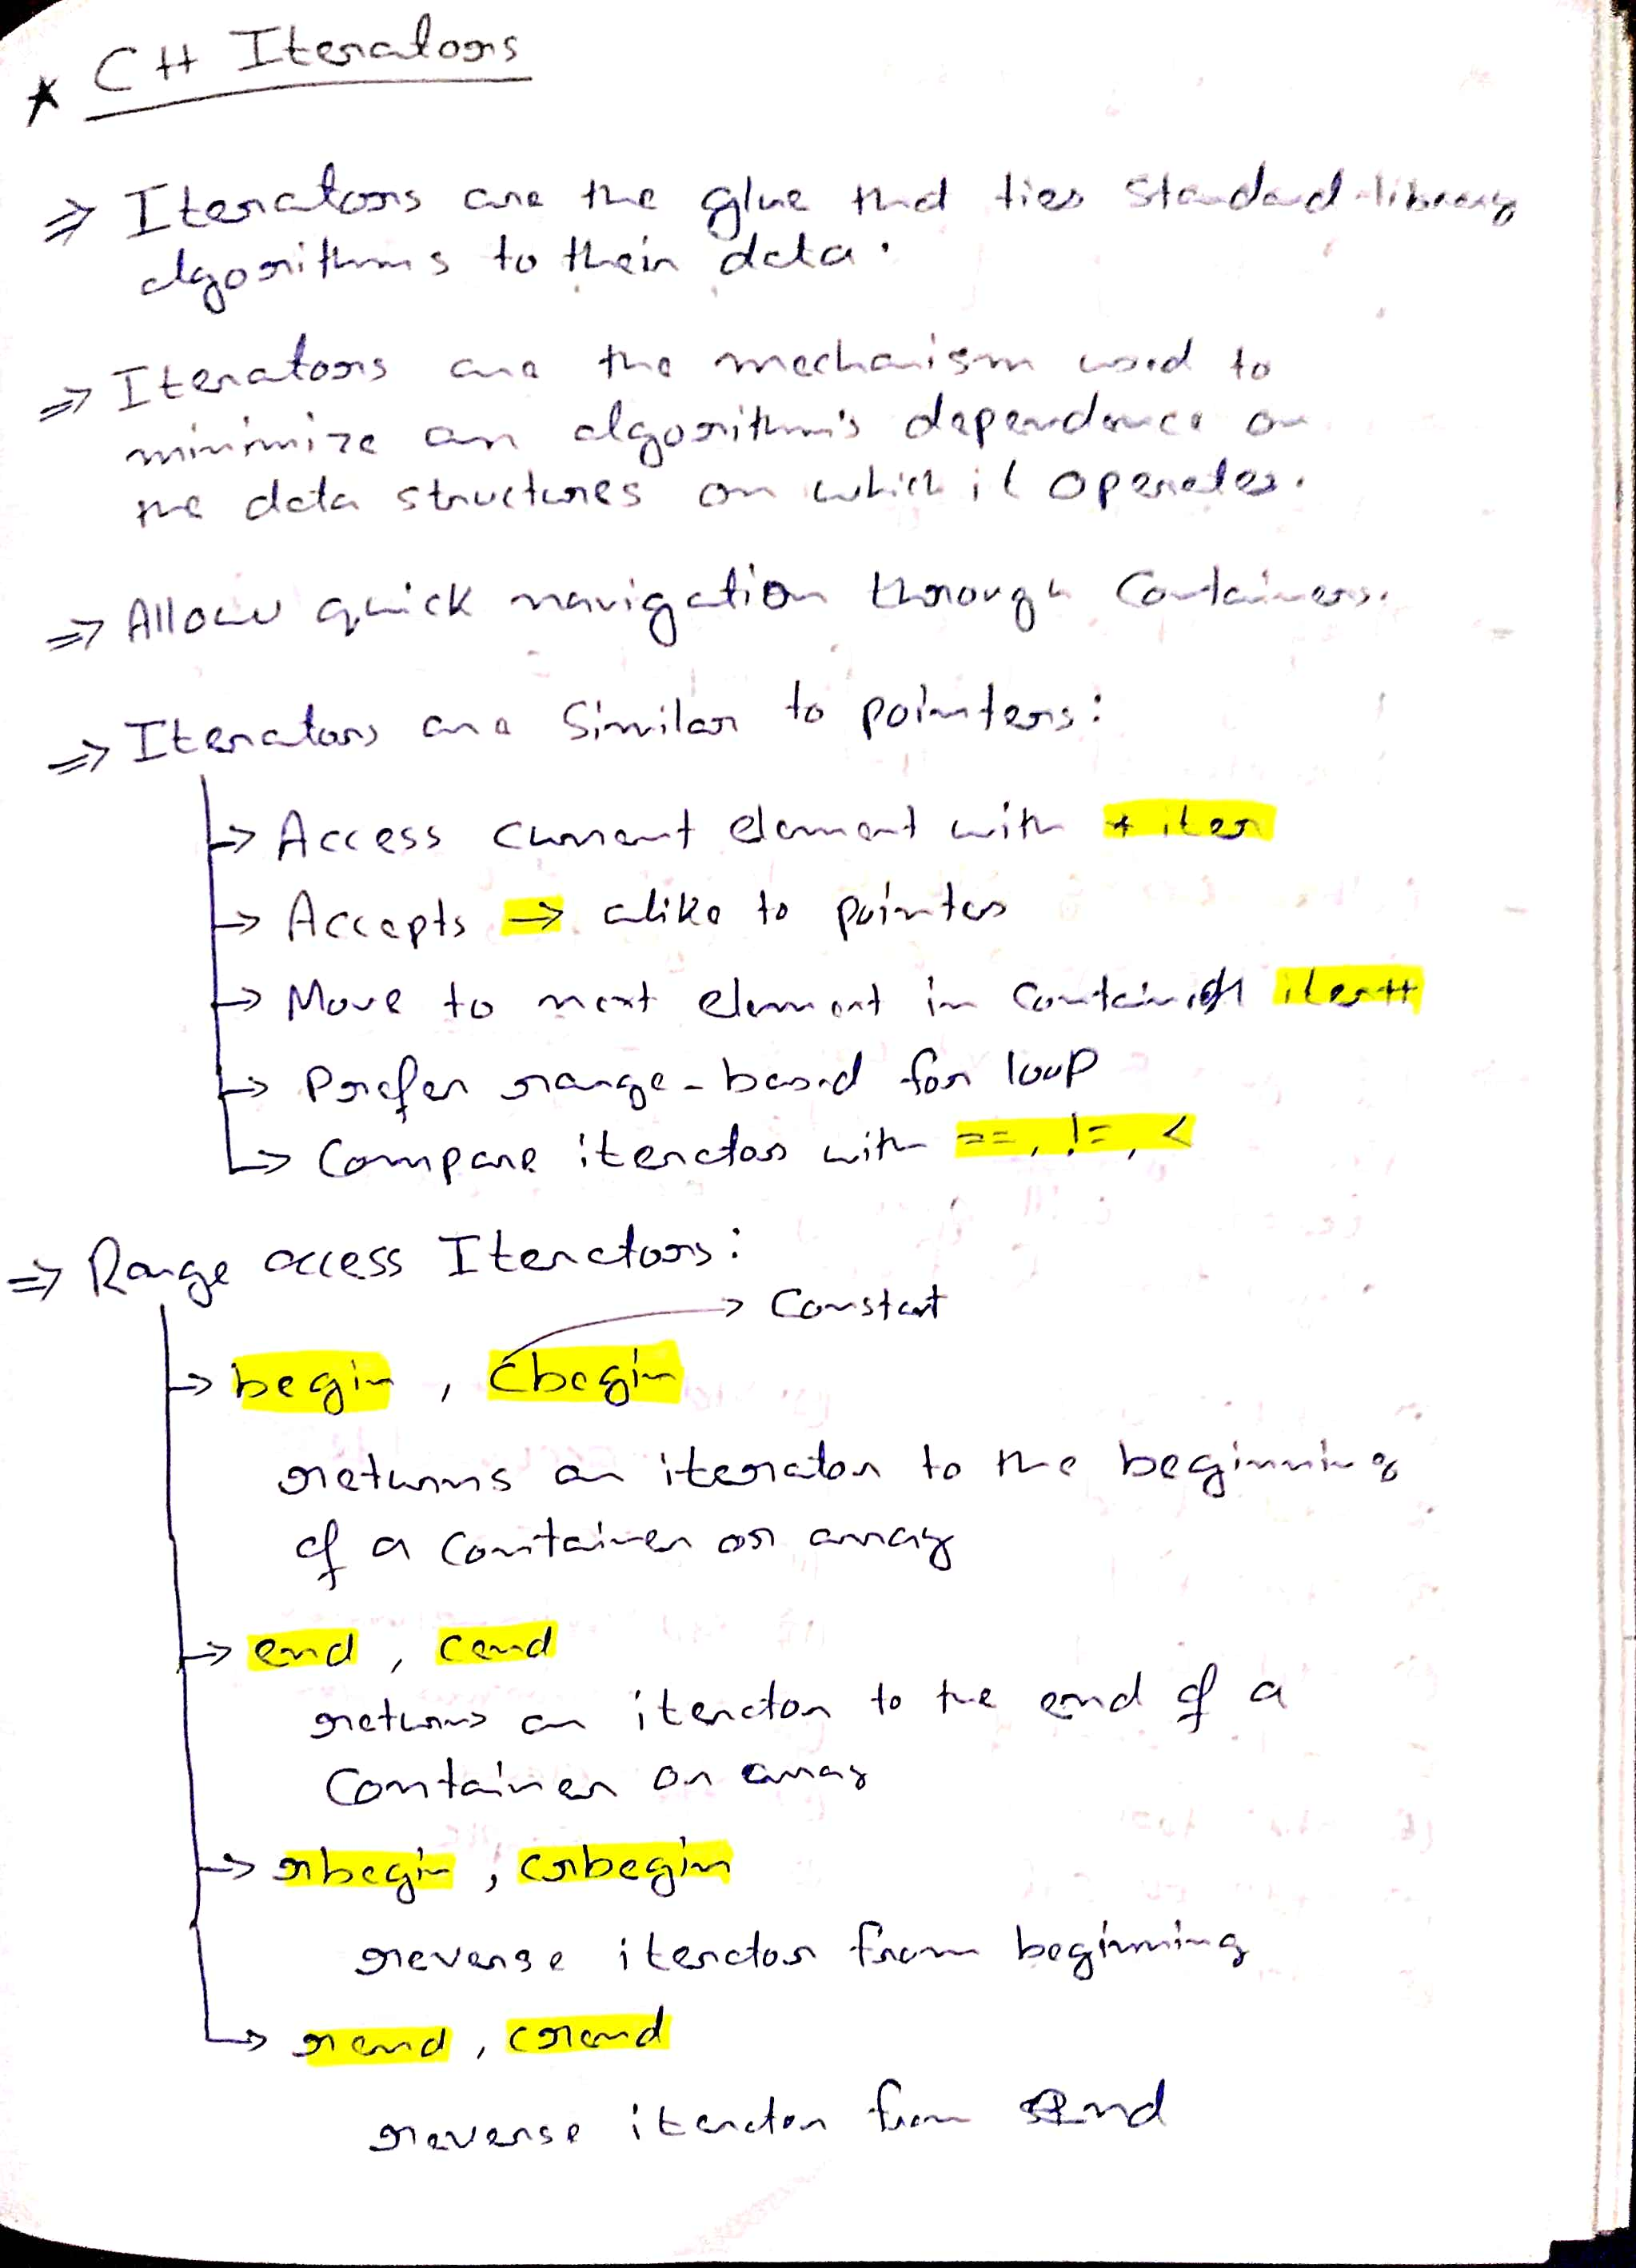 * C++ Iterators
⇒ Iterators are the glue that ties standard-library
algorithms to their data.
⇒ Iterators are the mechanism used to
minimize an algorithm's dependence on
the data structures on which it operates.
⇒ Allow quick navigation through Containers.
⇒ Iterators are Similar to pointers:
→ Access current element with *iter
→ Accepts → alike to pointers
→ Move to next element in container iter++
→ Prefer range-based for loop
→ Compare iterators with ==, !=, <
⇒ Range access Iterators:
→ Constant
→ begin, cbegin
returns an iterator to the beginning
of a container or array
→ end, cend
returns an iterator to the end of a
Container or array
→ rbegin, crbegin
reverse iterator from beginning
→ rend, crend
reverse iterator from end